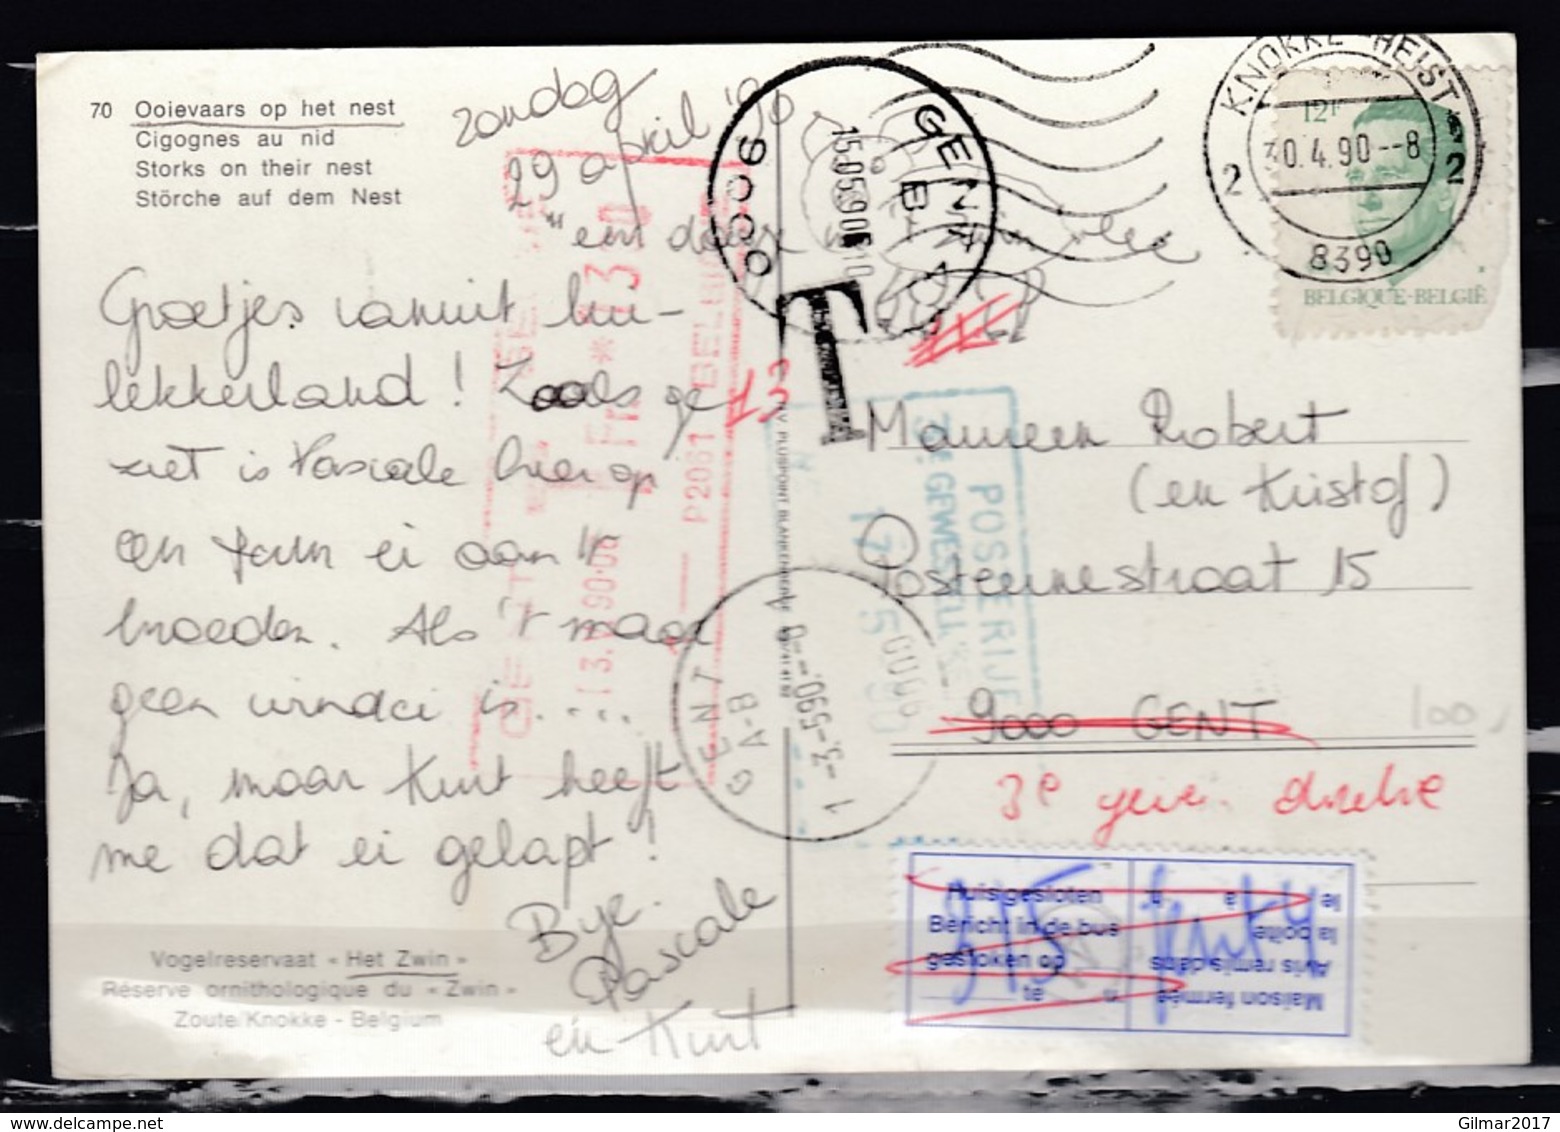 70 Ooievaars op het nest
Cigognes au nid
Storks on their nest
Störche auf dem Nest
zondag
29 april '90
"en douze
Groetjes vanuit lui-
lekkerland! Zoals ge
ziet is Pascale hier op
een ei aan 't
broeden. Als 't maar
geen windei is...
Ja, maar Kurt heeft
me dat ei gelapt!
Bye.
Pascale
en Kurt
Vogelreservaat « Het Zwin »
Réserve ornithologique du « Zwin »
Zoute/Knokke - Belgium
N.V. PLUSPOINT BLANKENBERGE
GENK 1
B
15-05 90
3600
T
13
KNOKKE-HEIST 1
2 30.4.90--8 2
8390
12F
BELGIQUE-BELGIË
P2061 BELGIQUE
*13
GENT 1
A-B
-3-5 90
9000
POSTERIJEN
3de GEWESTELIJKE
17 5 90
Maureen Robert
(en Kristof)
straat 15
9000 GENT
100,
3e gew. directie
Huis gesloten
Bericht in de bus
gestoken op
te u
Maison fermée
Avis remis dans
la boîte
le à h
9/5
Gilmar2017